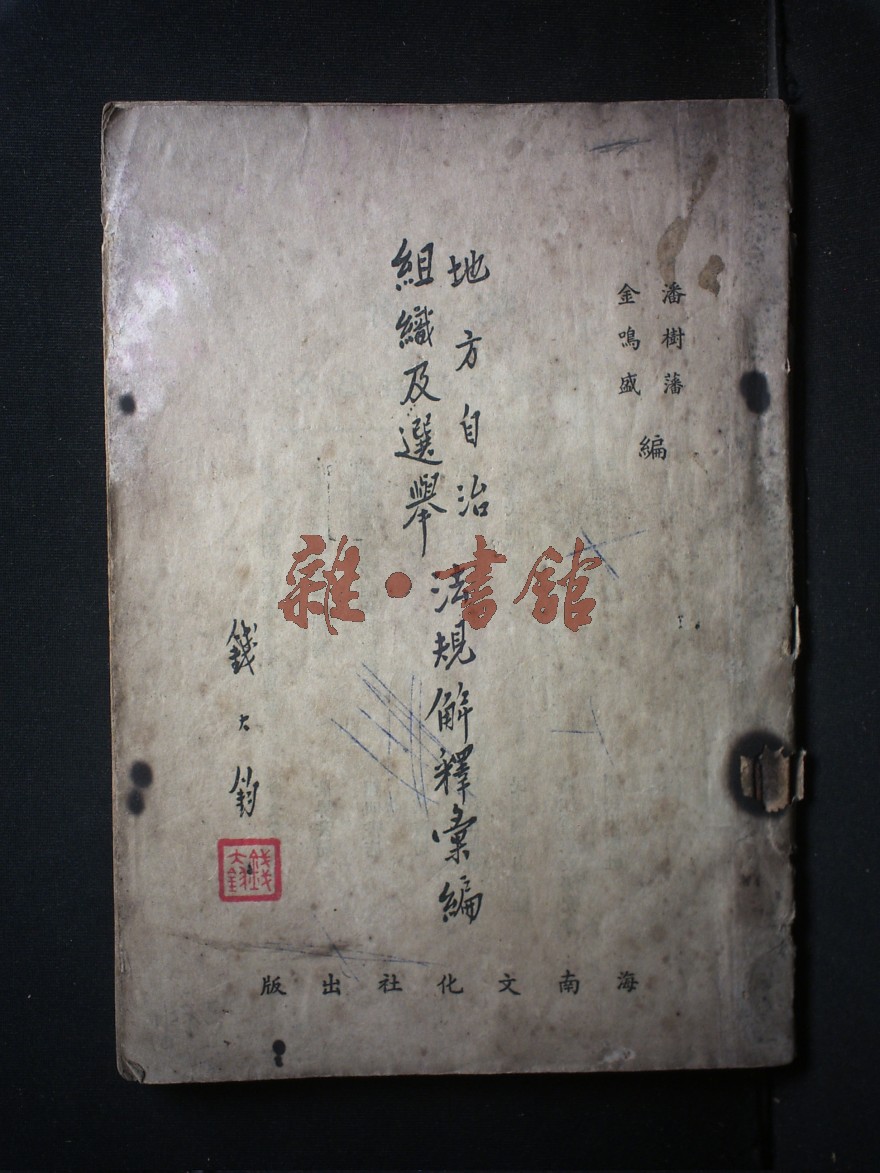 潘樹藩
金鳴盛
編
地方自治
組織及選舉
法規解釋彙編
錢大鈞
錢大鈞
海南文化社出版
雜·書館